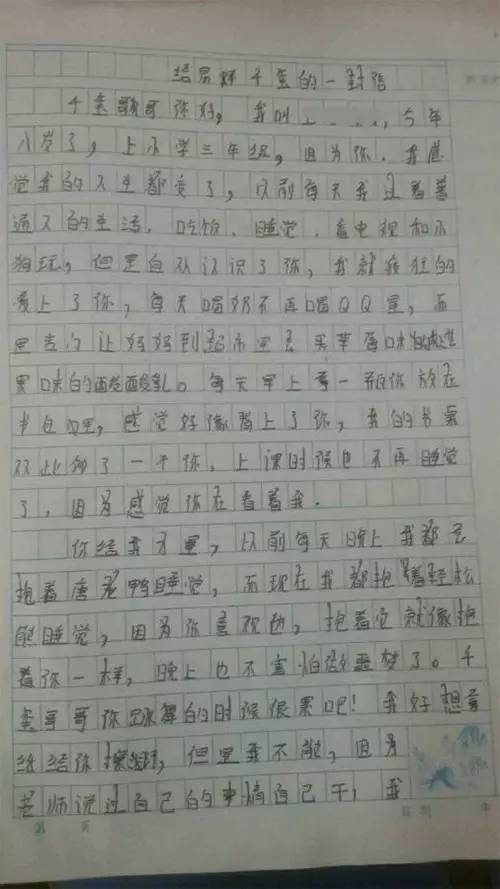 给易烊千玺的一封信
千玺哥哥你好，我叫 今年
八岁了，上小学三年级，因为你，我感
觉我的人生都变了，以前每天我过着普
通人的生活，吃饭、睡觉、看电视和小
狗玩，但是自从认识了你，我就疯狂的
爱上了你，每天喝奶不再喝QQ星，而
是吉 让妈妈到超市里去买苹
果味的酸酸乳。每天早上拿一瓶你放在
书包里，感觉好像背上了你，我的书
从此 了一 你，上课时候也不再睡觉
了，因为感觉你在看着我.
你给我力量，以前每天晚上我都会
抱着唐老鸭睡觉，而现在我都抱着轻松
熊睡觉，因为你喜欢他，抱着 就像抱
着你一样，晚上也不害怕 噩梦了。千
玺哥哥你跳舞的时候很累吧！我好想
给你擦 ，但是我不能，因为
老师说过自己的事情自己干，我
第 页